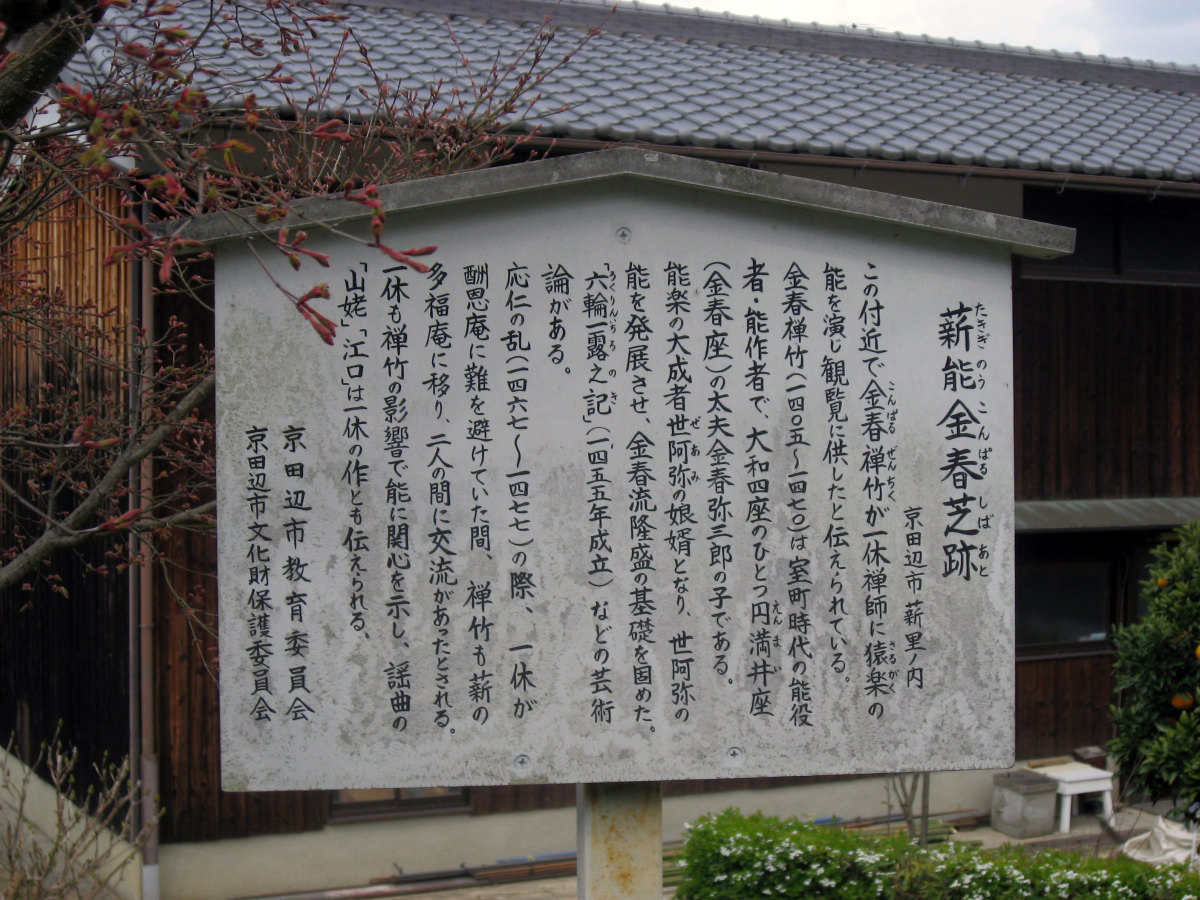 薪能金春芝跡
たきぎのう こんぱる しば あと
京田辺市 薪里ノ内
この付近で金春禅竹が一休禅師に猿楽の
こんぱる ぜんちく さるがく
能を演じ観覧に供したと伝えられている。
金春禅竹(一四〇五～一四七〇)は室町時代の能役
者・能作者で、大和四座のひとつ円満井座
えんまい
(金春座)の太夫金春弥三郎の子である。
能楽の大成者世阿弥の娘婿となり、世阿弥の
ぜあみ
能を発展させ、金春流隆盛の基礎を固めた。
「六輪一露之記」(一四五五年成立)などの芸術
ろくりんいちろのき
論がある。
応仁の乱(一四六七～一四七七)の際、一休が
酬恩庵に難を避けていた間、禅竹も薪の
多福庵に移り、二人の間に交流があったとされる。
一休も禅竹の影響で能に関心を示し、謡曲の
「山姥」「江口」は一休の作とも伝えられる、
京田辺市教育委員会
京田辺市文化財保護委員会